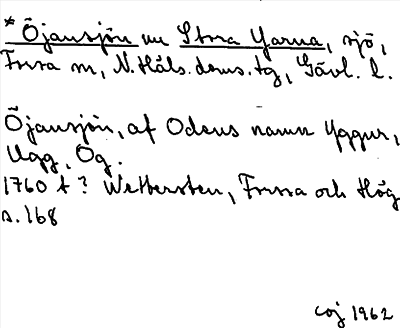 * Öjansjön nu Stora Yarna, sjö,
Forsa sn, N. Häls. doms. tg, Gävl. l.
Öjansjön, af Odens namn Yggur,
Ugg, Og.
1760 t? Wettersten, Forsa och Hög
s. 168
coj 1962